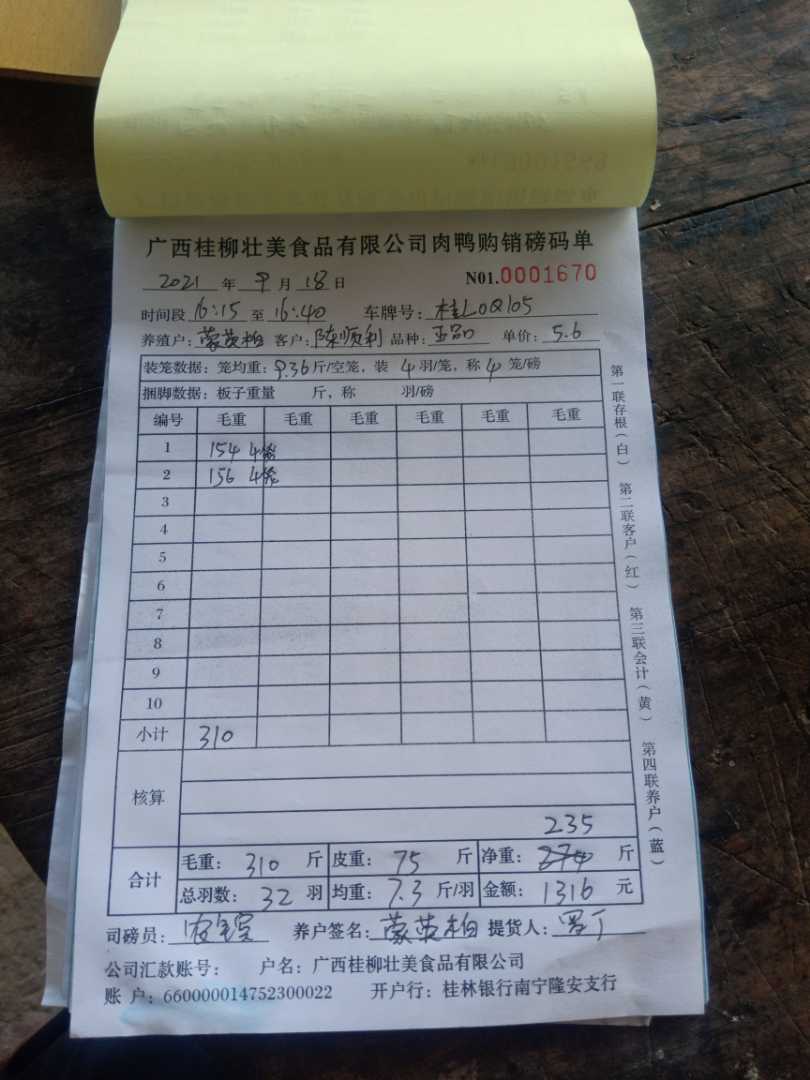 广西桂柳壮美食品有限公司肉鸭购销磅码单
2021 年 9 月 18 日 N01.0001670
时间段 16:15 至 16:40 车牌号: 桂L0Q105
养殖户: 蒙英柏 客户: 陈顺利 品种: 正品 单价: 5.6
装笼数据: 笼均重: 9.36 斤/空笼, 装 4 羽/笼, 称 4 笼/磅
捆脚数据: 板子重量 斤, 称 羽/磅
编号 毛重 毛重 毛重 毛重 毛重 毛重
1 154 4笼
2 156 4笼
3
4
5
6
7
8
9
10
小计 310
核算
235
合计 毛重: 310 斤 皮重: 75 斤 净重: 斤
总羽数: 32 羽 均重: 7.3 斤/羽 金额: 1316 元
司磅员: 养户签名: 蒙英柏 提货人:
公司汇款账号: 户名: 广西桂柳壮美食品有限公司
账 户: 660000014752300022 开户行: 桂林银行南宁隆安支行
第一联存根(白) 第二联客户(红) 第三联会计(黄) 第四联养户(蓝)